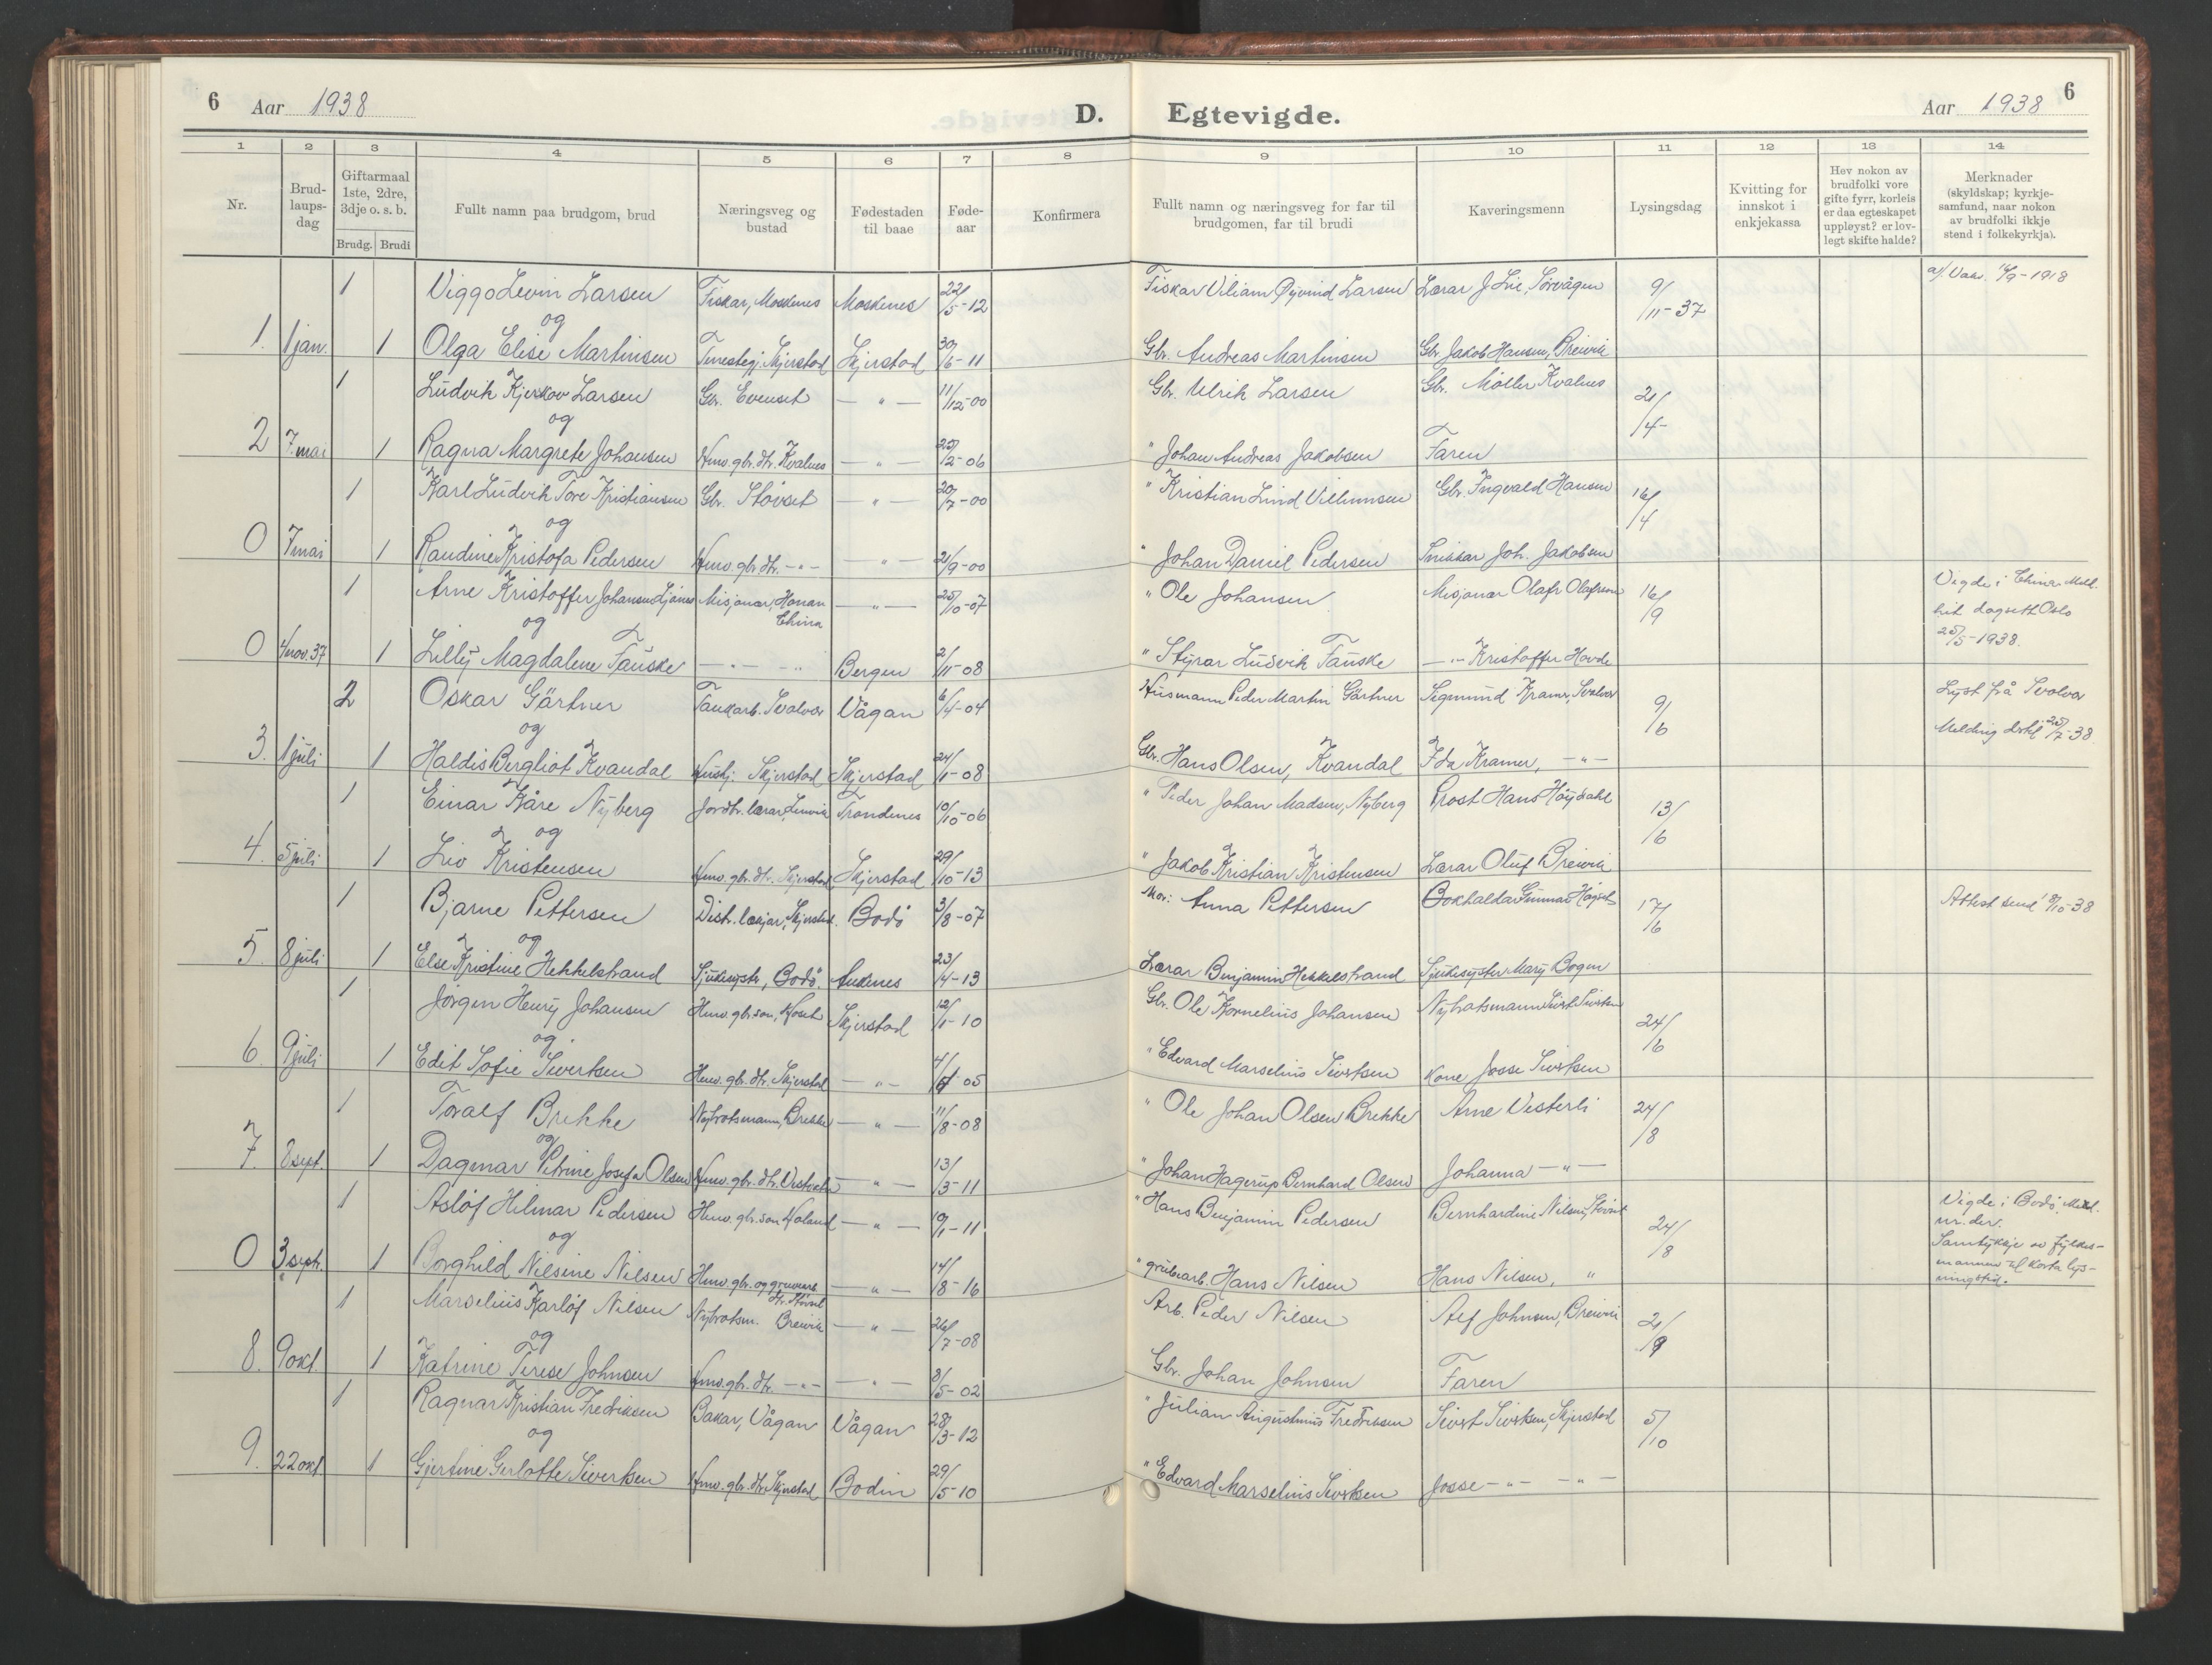 6 Aar 1938 D. Egtevigde. Aar 1938 6
1 2 3 4 5 6 7 8 9 10 11 12 13 14
Nr. Brudlaupsdag Giftarmaal 1ste, 2dre, 3dje o. s. b. Brudg. Brudi Fullt namn paa brudgom, brud Næringsveg og bustad Fødestaden til baae Fødeaar Konfirmera Fullt namn og næringsveg for far til brudgomen, far til brudi Kaveringsmenn Lysingsdag Kvitting for innskot i enkjekassa Hev nokon av brudfolki vore gifte fyrr, korleis er daa egteskapet uppløyst? er lovlegt skifte halde? Merknader (skyldskap; kyrkjesamfund, naar nokon av brudfolki ikkje stend i folkekyrkja).
1 Viggo Levin Larsen Fiskar, Moskenes Moskenes 22/5-12 Fiskar Viliam Øyvind Larsen Lærar J Lie, Sørvågen 9/11-37 a/ Vaks. 14/9-1918
og
1. 1 jan. 1 Olga Elise Martinsen Tenestegj. Skjerstad Skjerstad 30/6-11 Gbr. Andreas Martinsen Gbr. Jakob Hansen, Breivik
1 Ludvik Kjerkov Larsen Gbr. Evenset — " — 11/12-00 Gbr. Ulrik Larsen Gbr. Møller Kvalnes 21/4-
og
2 7. mai 1 Ragna Margrete Johansen Hmv. gbr. dtr. Kvalnes — " — 25/2-06 " Johan Andreas Jakobsen Faren
1 Karl Ludvik Tore Kristiansen Gbr. Støvset — " — 20/7-00 " Kristian Lind Villumsen Gbr. Ingvald Hansen 16/4
og
0 7 mai 1 Randine Kristofa Pedersen Hmv. gbr. dtr. — " — — " — 21/9-00 " Johan Daniel Pedersen Snikkar Joh. Jakobsen
1 Arne Kristoffer Johansen Ljønes Misjonær, Honan China — " — 25/10-07 " Ole Johansen Misjonær Olafr Olafson 16/9 Vigde i China. Meld.
og hit dagsett Oslo
0 4 nov. 37 1 Lilly Magdalene Fauske — " — " Bergen 2/11-08 " Styrar Ludvik Fauske — " — Kristoffer Hovde 25/5-1938.
2 Oskar Gärtner Tankarb. Svolvær Vågan 6/4-04 Husmann Peder Martin Gärtner Sigmund Kramer, Svolvær 9/6 Lyst frå Svolvær
og Melding dertil 25/7-38
3. 1 juli 1 Haldis Bergliot Kvandal Hustj. Skjerstad Skjerstad 24/1-08 Gbr. Hans Olsen, Kvandal Ida Kramer, — " —
1 Einar Kåre Nyberg Jordbr. lærar, Lenvik Trondenes 10/10-06 " Peder Johan Madsen, Nyberg Prost Hans Höydahl 13/6
og
4. 5 juli 1 Liv Kristensen Hmv. gbr. dtr. Skjerstad Skjerstad 29/10-13 " Jakob Kristian Kristensen Lærar Oluf Breivik
1 Bjarne Pettersen Distr. lækjar, Skjerstad. Bodö 3/8-07 Mor: Anna Pettersen Bokhaldar Gunnar Høgset 17/6 Attest send 18/10-38
og
5. 8 juli 1 Else Kristine Hekkelstrand Sjukesyster, Bodö. Ankenes 23/4-13 Lærar Benjamin Hekkelstrand Sjukesyster Mary Bogen
1 Jörgen Henry Johansen Hmv. gbr. son, Hoset Skjerstad 12/1-10 Gbr. Ole Kornelius Johansen Nybrotsmann Sivert Sivertsen 24/6
og.
6. 9 juli 1 Edit Sofie Sivertsen Hmv. gbr. dtr. Skjerstad — " — 4/6-05 " Edvard Marselius Sivertsen Kone Josse Sivertsen
1 Toralf Brekke Nybrotsmann, Brekke — " — 11/8-08 " Ole Johan Olsen Brekke Arne Vesterli 24/8
og
7. 8 sept. 1 Dagmar Petrine Josefa Olsen Hmv. gbr. dtr. — " — 13/3-11 " Johan Hagerup Bernhard Olsen Johanna — " —
1 Asløf Hilmar Pedersen Hmv. gbr. son — " — 19/1-11 " Hans Benjamin Pedersen Bernhardine Nilsen, Støvset 24/8 Vigde i Bodö. Meld.
og nr. der.
0 3 sept. 1 Borghild Nilsine Nilsen Hmv. gbr. og gruvearb. dtr. Støvset — " — 14/8-16 " grubearb. Hans Nilsen Hans Nilsen, " Samtykkje av fylkesmannen til korta lysningstid.
1 Marselius Karlöf Nilsen Nybrotsm. Breivik — " — 26/7-08 Arb. Peder Nilsen Alf Johnsen, Breivik 21/9
og
8. 9 okt. 1 Katrine Terese Johnsen Hmv. gbr. dtr. — " — — " — 8/5-02 Gbr. Johan Johnsen Faren
1 Ragnar Kristian Fredriksen Bakar, Vågan Vågan 28/3-12 " Julian Augustinus Fredriksen Sivert Sivertsen, Skjerstad 5/10
og
9. 22 okt 1 Gjertine Gerlotte Sivertsen Hmv. gbr. dtr. Skjerstad Bodin 29/5-10 " Edvard Marselius Sivertsen Josse — " — — " —